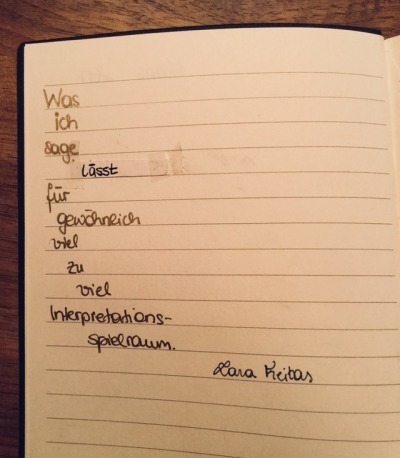 Was
ich
sage
lässt
für
gewöhnlich
viel
zu
viel
Interpretations-
spielraum.
Lara Freitas